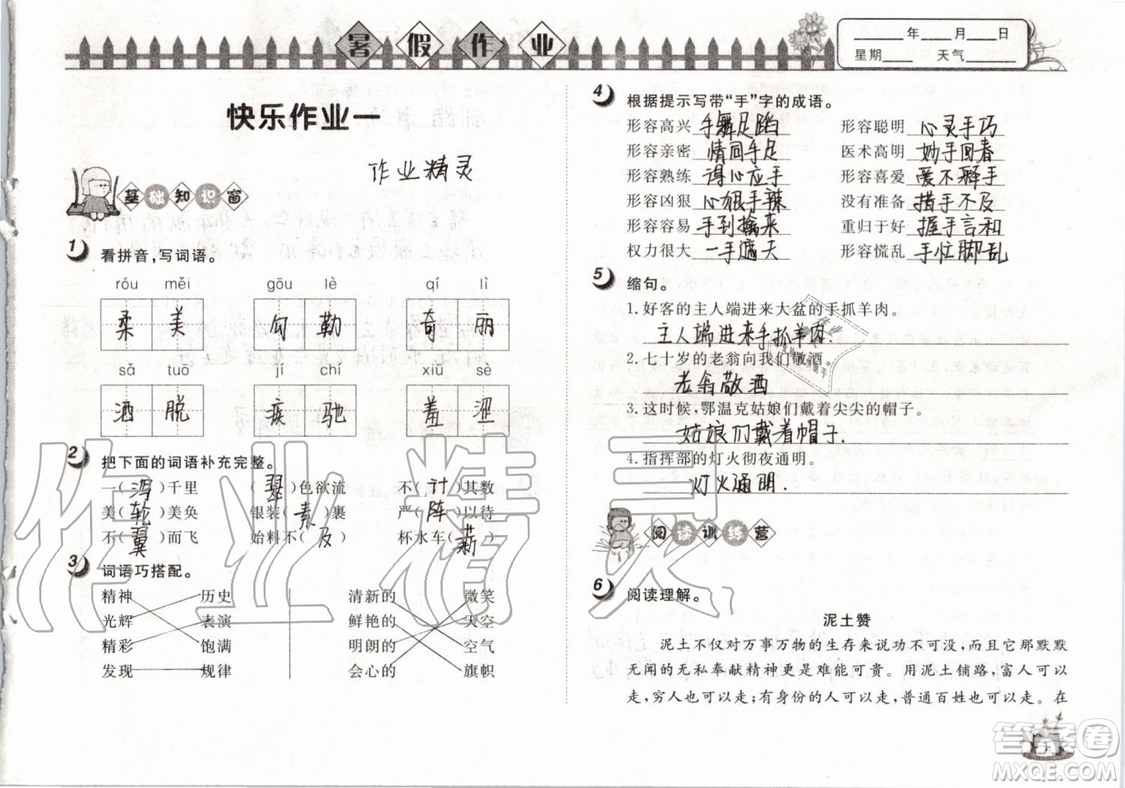 暑假作业
____年____月____日
星期____ 天气____
快乐作业一
作业精灵
基础知识窗
1 看拼音,写词语。
róu měi gōu lè qí lì
柔美 勾勒 奇丽
sǎ tuō jí chí xiū sè
洒脱 疾驰 羞涩
2 把下面的词语补充完整。
一(泻)千里 (翠)色欲流 不(计)其数
美(轮)美奂 银装(素)裹 严(阵)以待
不(翼)而飞 始料不(及) 杯水车(薪)
3 词语巧搭配。
精神 历史 清新的 微笑
光辉 表演 鲜艳的 天空
精彩 饱满 明朗的 空气
发现 规律 会心的 旗帜
4 根据提示写带“手”字的成语。
形容高兴 手舞足蹈 形容聪明 心灵手巧
形容亲密 情同手足 医术高明 妙手回春
形容熟练 得心应手 形容喜爱 爱不释手
形容凶狠 心狠手辣 没有准备 措手不及
形容容易 手到擒来 重归于好 握手言和
权力很大 一手遮天 形容慌乱 手忙脚乱
5 缩句。
1. 好客的主人端进来大盆的手抓羊肉。
主人端进来手抓羊肉.
2. 七十岁的老翁向我们敬酒。
老翁敬酒
3. 这时候,鄂温克姑娘们戴着尖尖的帽子。
姑娘们戴着帽子.
4. 指挥部的灯火彻夜通明。
灯火通明.
阅读训练营
6 阅读理解。
泥土赞
泥土不仅对万事万物的生存来说功不可没,而且它的那默默
无闻的无私奉献精神更是难能可贵。用泥土铺路,富人可以
走,穷人也可以走;有身份的人可以走,普通百姓也可以走。在
1
作业精灵
答案圈
MXQE.COM